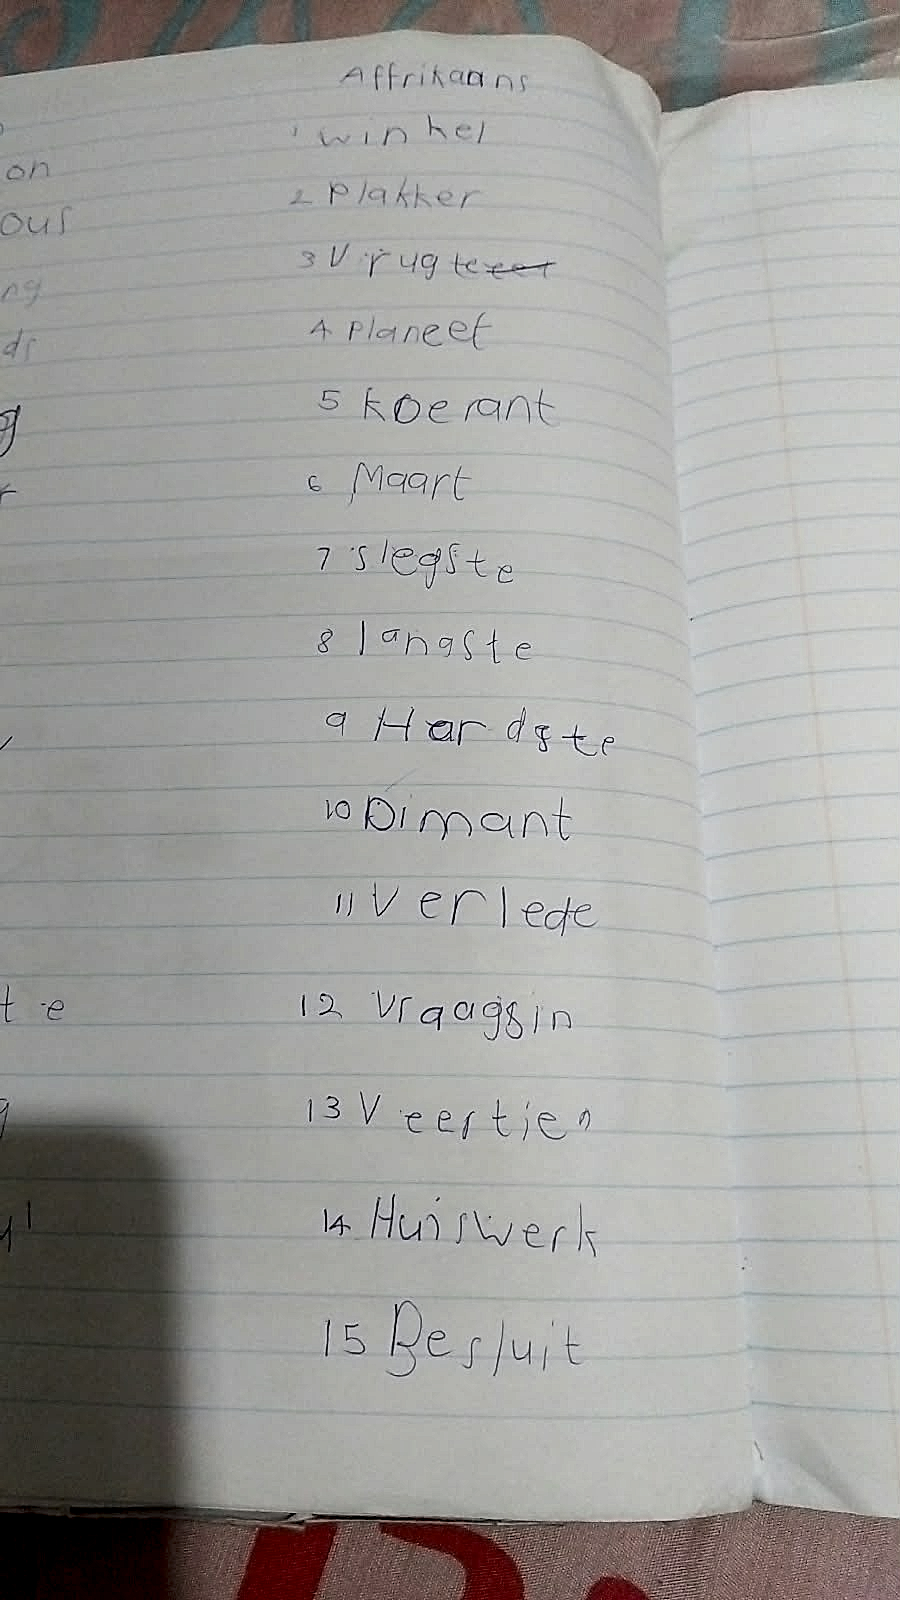 Affrikaans
1 winkel
on
2 Plakker
ous
3 Vrugte
ng
4 Planeet
ds
5 koerant
g
6 Maart
r
7 slegste
8 langste
9 Hardste
10 Dimant
11 Verlede
te
12 Vraagsin
13 Veertien
g
14 Huiswerk
15 Besluit